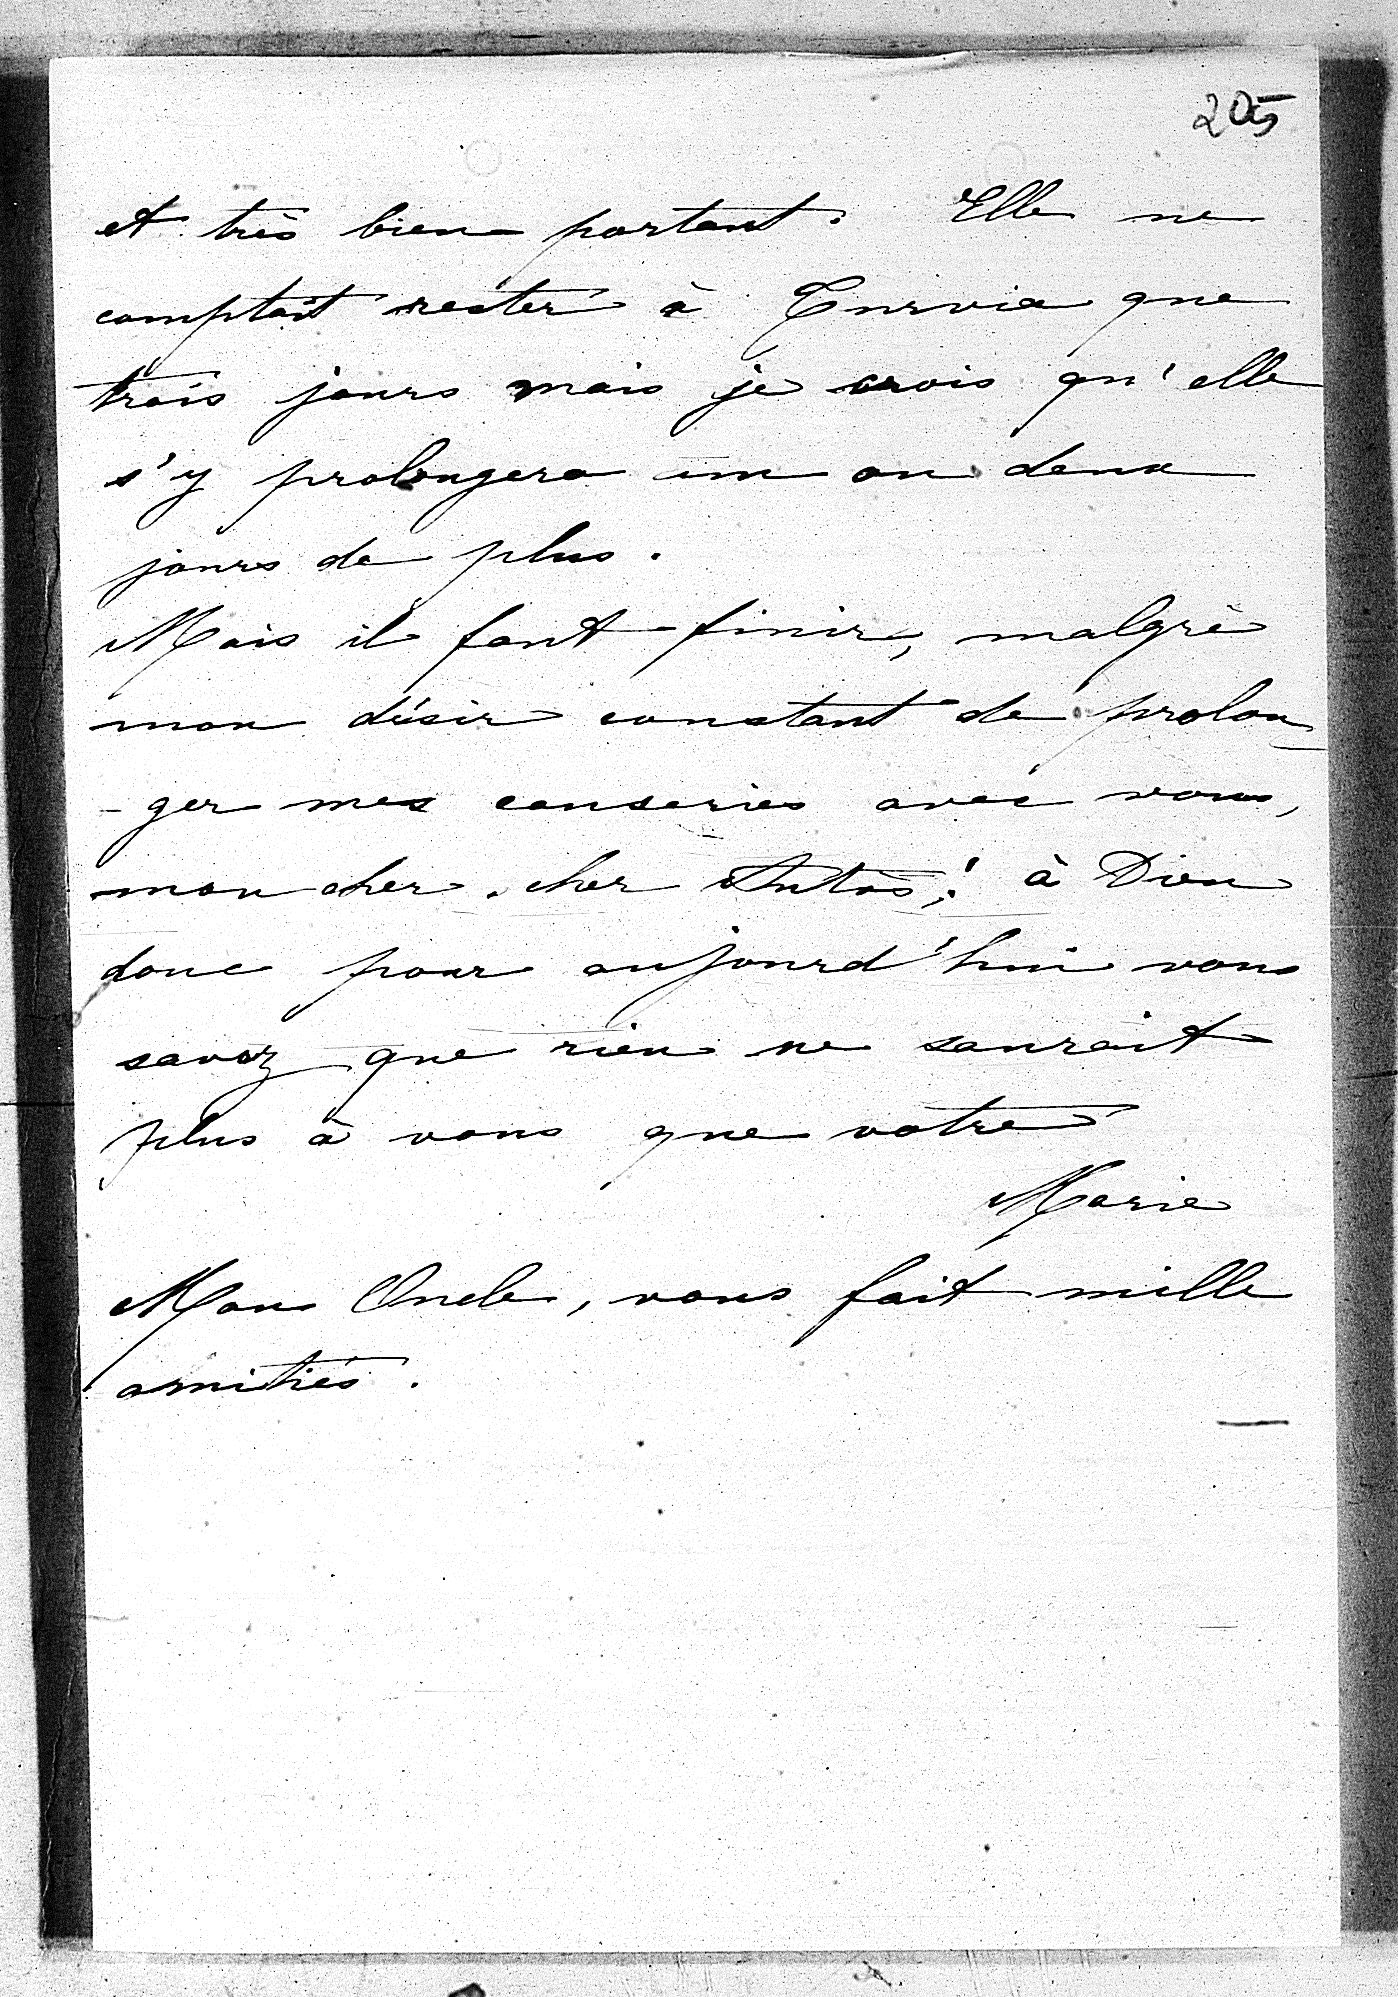 205
et très bien portant. Elle ne
comptait rester à Turvia que
trois jours mais je crois qu'elle
s'y prolongera un ou deux
jours de plus.
Mais il faut finir, malgré
mon désir constant de prolon
- ger mes causeries avec vous,
mon cher, cher Antos! à Dieu
donc pour aujourd'hui vous
savez que rien ne saurait
plus à vous que votre
Marie
Mon Oncle, vous fait mille
amitiés.